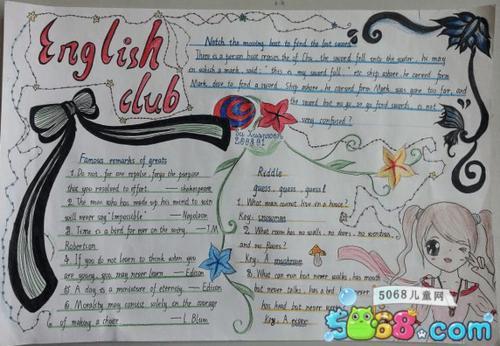 English
club
Notch the moving boat to find the lost sword
There is a person boat crosses the of Chu. the sword fell into the water, he may
in which a mark, said: "this is my sword fall", etc ship where he carved form
Mark, dove to find a sword. Ship where he carved form Mark was gone too far, and
the sword but no go, so go find swords, is not
very confused?
Famous remarks of greats
1. Do not, for one repulse, forgo the purpose
that you resolved to effort. — shakespeare
2. The man who has made up his mind to win
will never say "Impossible" — Napoleon
3. Time is a bird for ever on the wing. — T.W
Robertson
4. If you do not learn to think when you
are young, you may never learn — Edison
5. A day is a miniature of eternity — Edison
6. Morality may consist solely in the courage
of making a choice — L. Blum
Riddle
guess, guess, guess!
1. What man cannot live in a house?
Key: snowman
2. What room has no walls, no doors, no windows,
and no floors?
Key: A mushroom
3. What can run but never walks, has mouth
but never talks, has a bed
has head but never
Key: A river
5068儿童网
5068.com